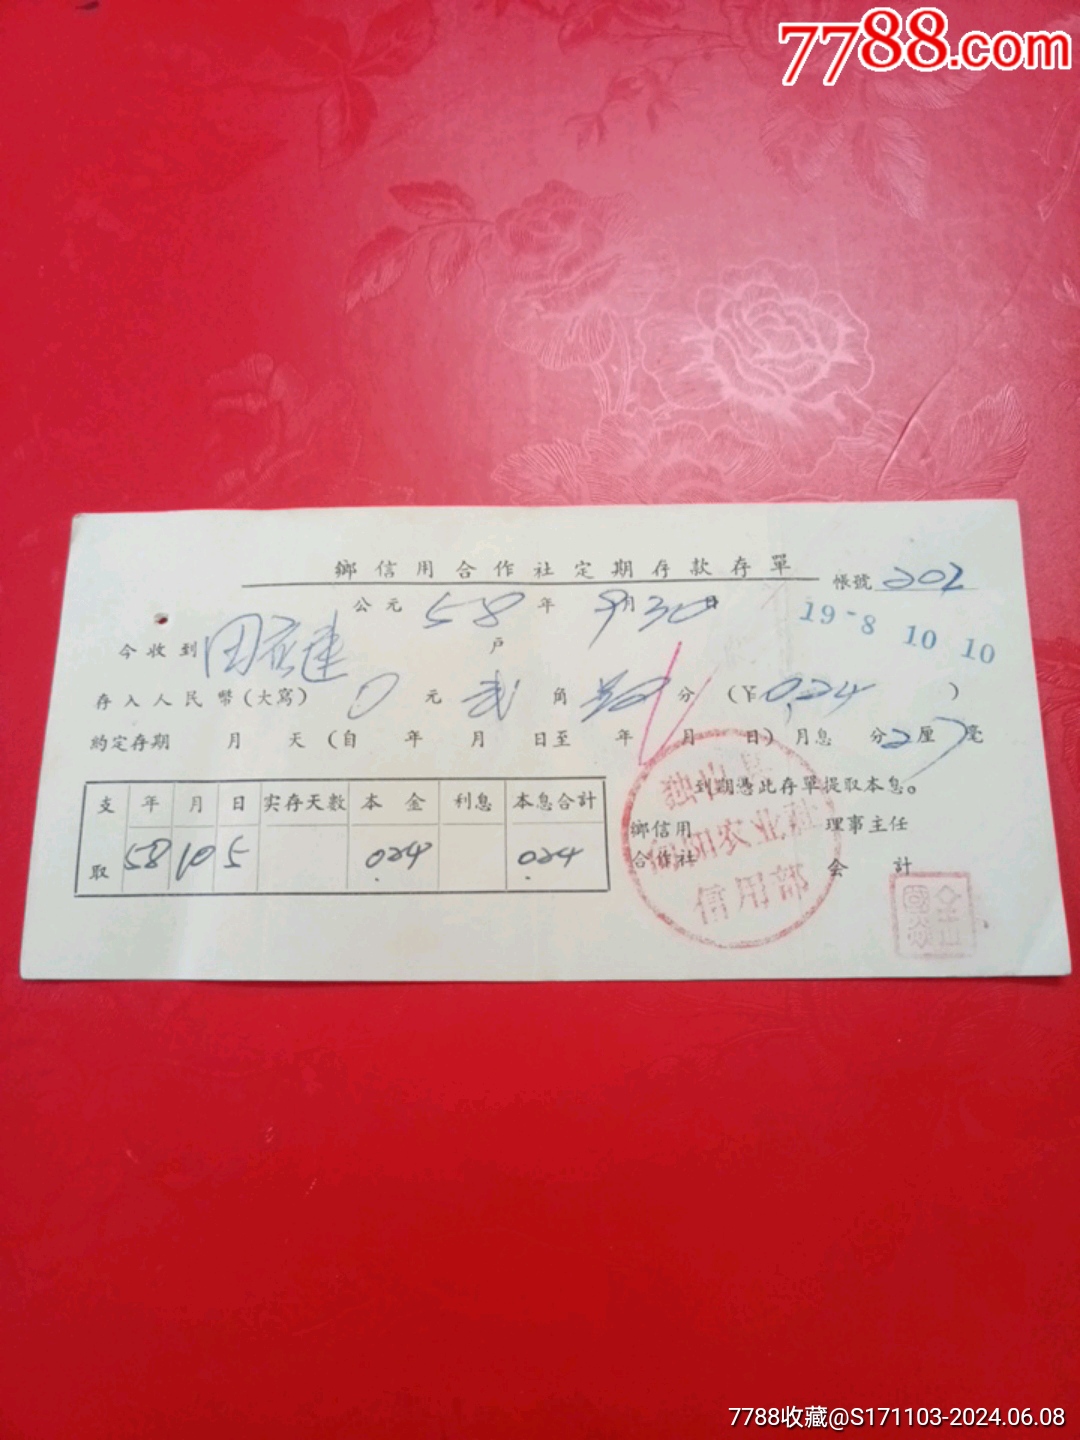 7788.com
鄉信用合作社定期存款存單
帳號 202
公元 58 年 9月30日
19-8 10 10
今收到 戶
存入人民幣(大寫) 0 元 貳 角 分 (¥0.24 )
約定存期 月 天 (自 年 月 日至 年 月 日) 月息 分2厘7毫
到期憑此存單提取本息。
支取 年 月 日 实存天数 本金 利息 本息合計
58 10 5 024 024
鄉信用合作社
理事主任
会計
独山县
农业社
信用部
7788收藏@S171103-2024.06.08